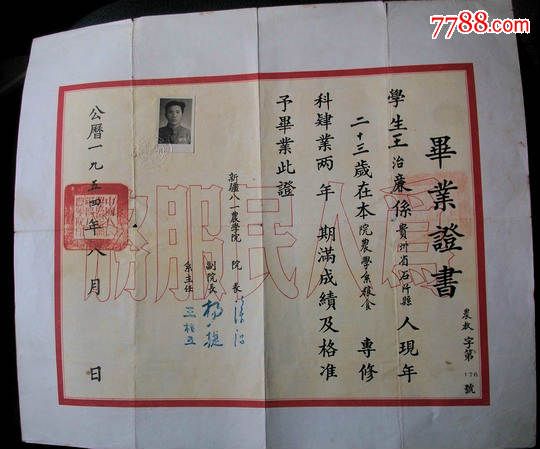 7788.com
中国收藏热线
畢業證書
農教字第176號
學生王治廉係貴州省石阡縣人現年
二十三歲在本院農學系粮食專修
科肄業两年期滿成績及格准
予畢業此證
新疆八一農學院
院長
副院長
系主任
公曆一九五四年八月
日
為人民服務